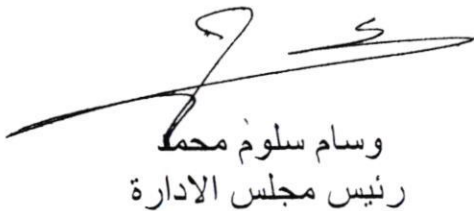 وسام سلوم محمد
رئيس مجلس الادارة